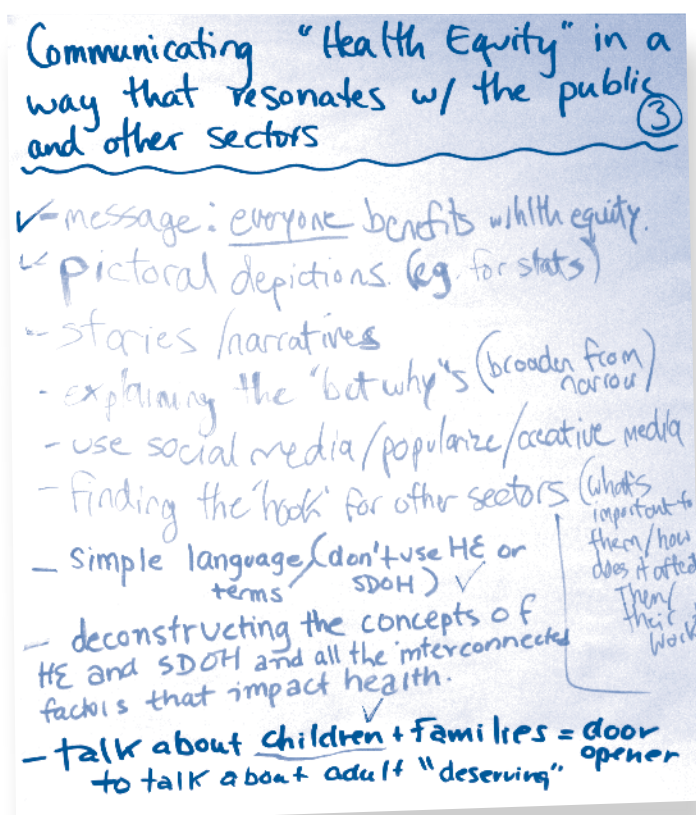 Communicating "Health Equity" in a
way that resonates w/ the public
and other sectors
③
✓-message: everyone benefits w/hlth equity.
✓ pictoral depictions. (eg. for stats)
- stories/narratives
- explaining the "but why"s (broaden from
narrow)
- use social media/popularize/creative media
- finding the 'hook' for other sectors (what's
important to
them/how
does it affect
Them/
their
work
- Simple language/terms (don't use HE or
SDOH) ✓
- deconstructing the concepts of
HE and SDOH and all the interconnected
factors that impact health.
✓
- talk about children + families = door
opener
to talk about adult "deserving"